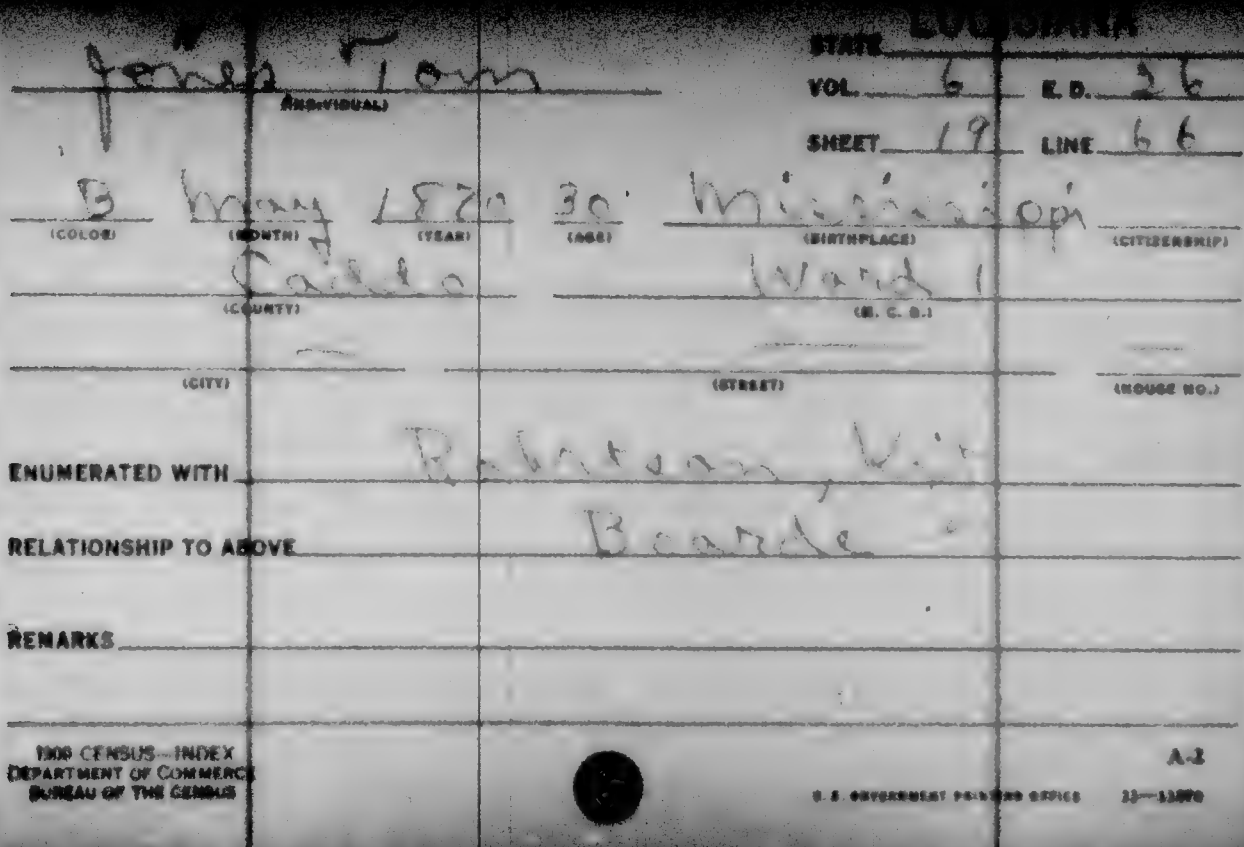 STATE LOUISIANA
Jones Tom
(INDIVIDUAL)
VOL. 6 E. D. 26
SHEET 19 LINE 66
B May 1870 30 Mississippi
(COLOR) (MONTH) (YEAR) (AGE) (BIRTHPLACE) (CITIZENSHIP)
Caddo Ward 1
(COUNTY) (M. C. D.)
— — —
(CITY) (STREET) (HOUSE NO.)
ENUMERATED WITH Robertson, Kit
RELATIONSHIP TO ABOVE Boarder
REMARKS
1900 CENSUS—INDEX A-2
DEPARTMENT OF COMMERCE
BUREAU OF THE CENSUS U. S. GOVERNMENT PRINTING OFFICE